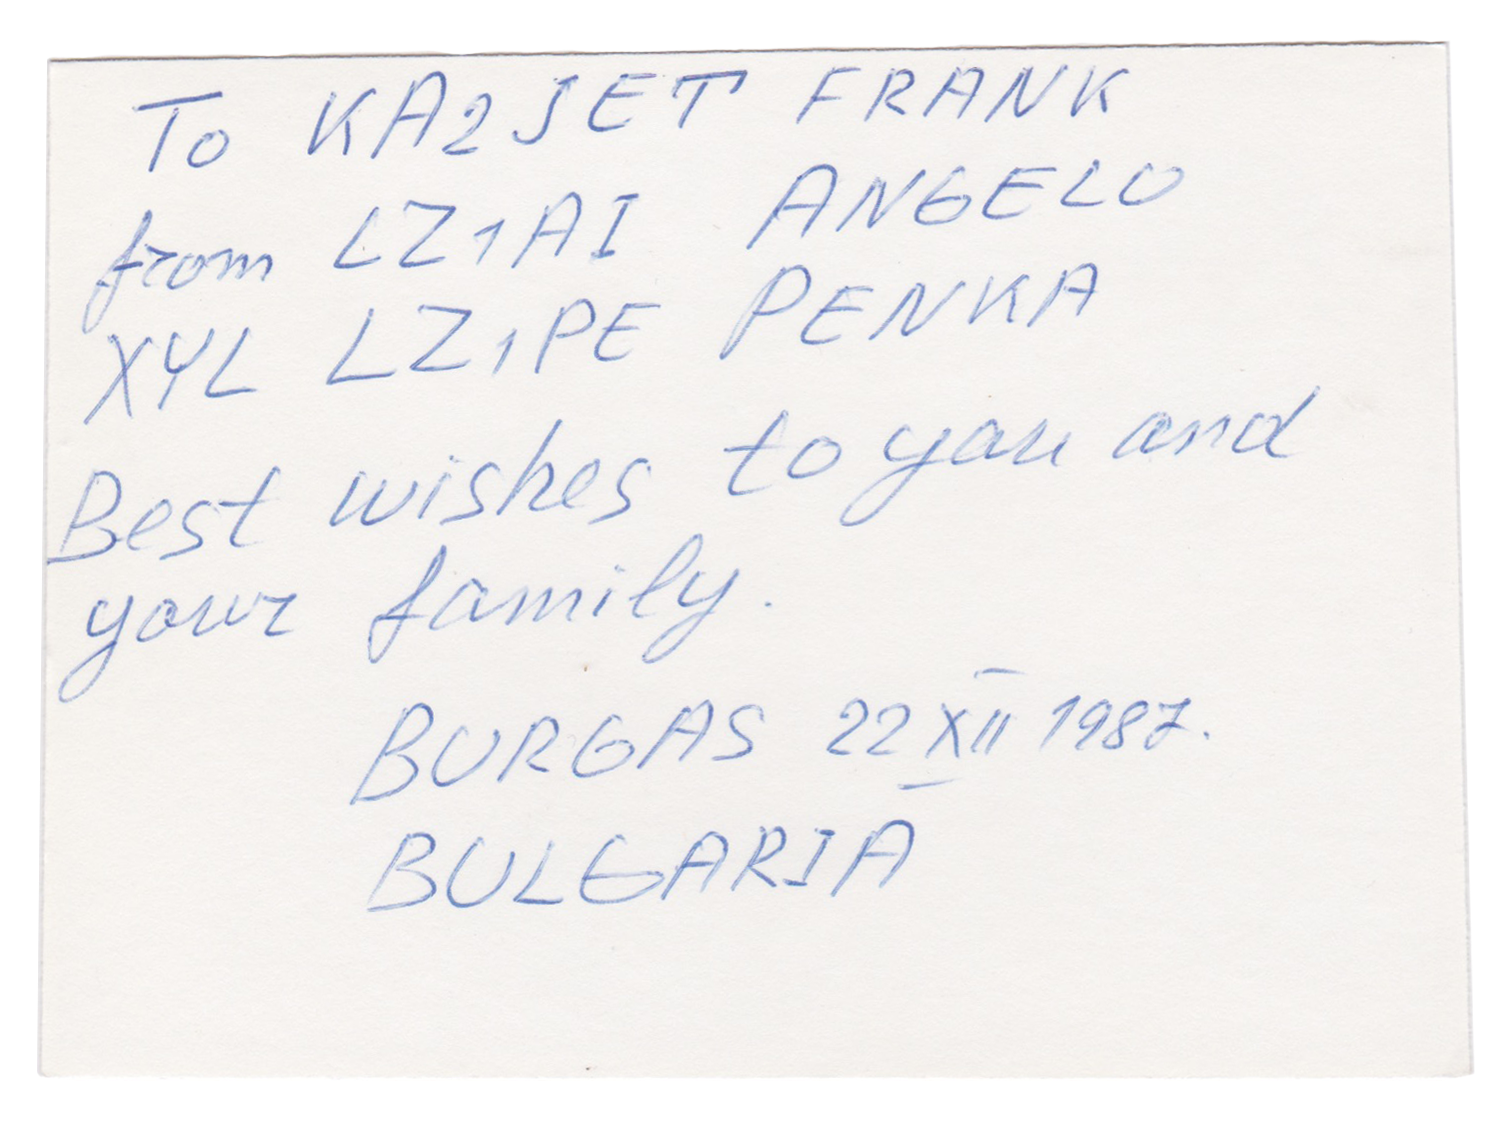 To KA2JET FRANK
from LZ1AI ANGELO
XYL LZ1PE PENKA
Best wishes to you and
your family.
BURGAS 22 XII 1987.
BULGARIA